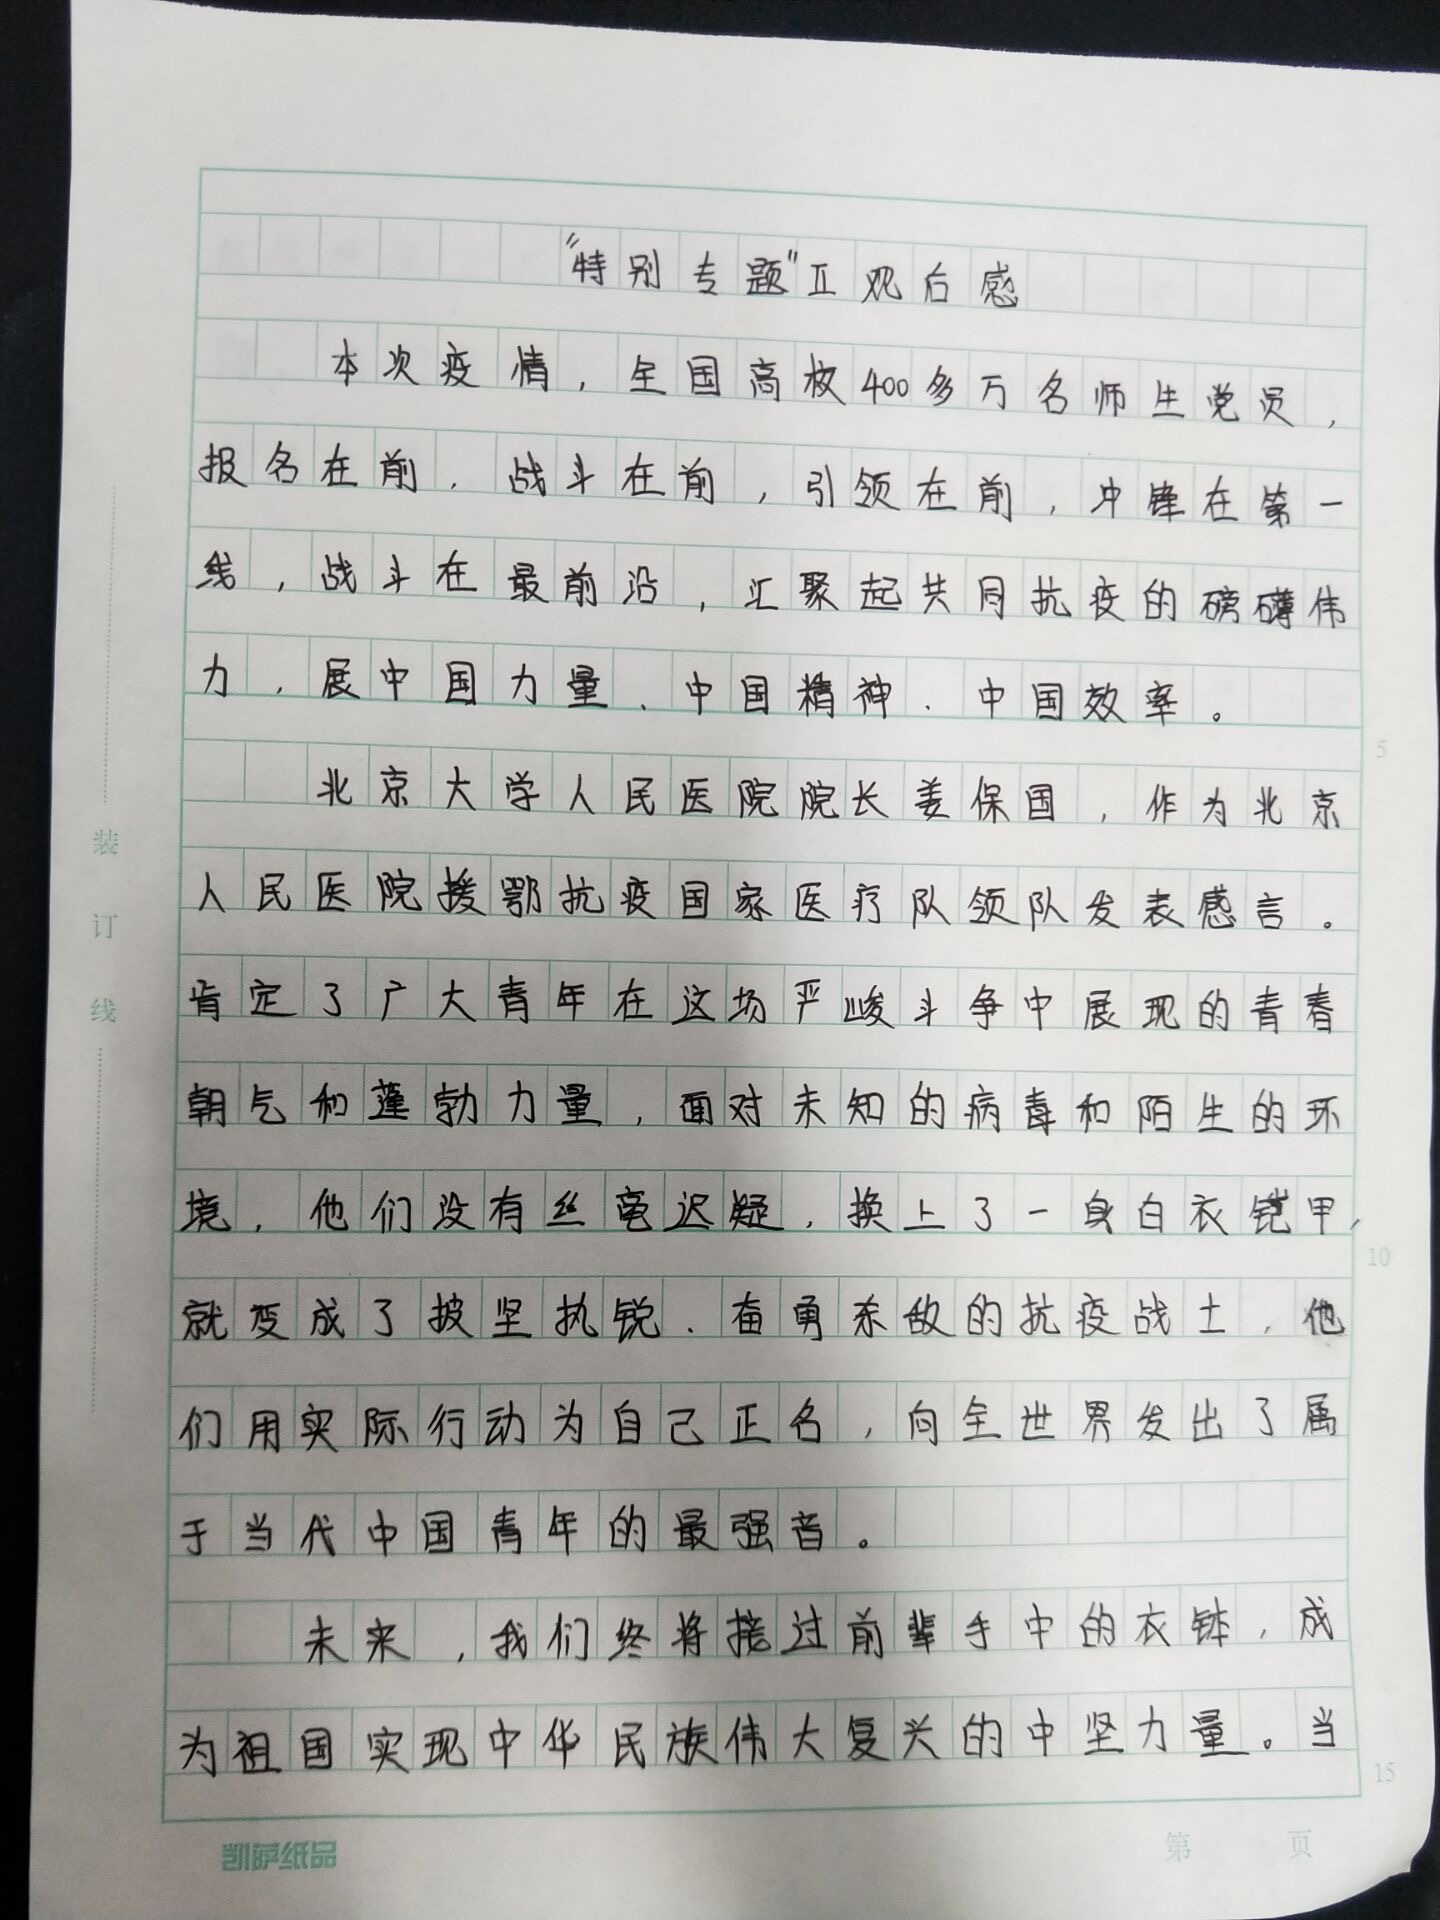 “特别专题”II观后感
本次疫情，全国高校400多万名师生党员，
报名在前，战斗在前，引领在前，冲锋在第一
线，战斗在最前沿，汇聚起共同抗疫的磅礴伟
力，展中国力量、中国精神、中国效率。
北京大学人民医院院长姜保国，作为北京
人民医院援鄂抗疫国家医疗队领队发表感言。
肯定了广大青年在这场严峻斗争中展现的青春
朝气和蓬勃力量，面对未知的病毒和陌生的环
境，他们没有丝毫迟疑，换上了一身白衣铠甲，
就变成了披坚执锐、奋勇杀敌的抗疫战士，他
们用实际行动为自己正名，向全世界发出了属
于当代中国青年的最强音。
未来，我们终将接过前辈手中的衣钵，成
为祖国实现中华民族伟大复兴的中坚力量。当
装
订
线
5
10
15
凯萨纸品
第 页